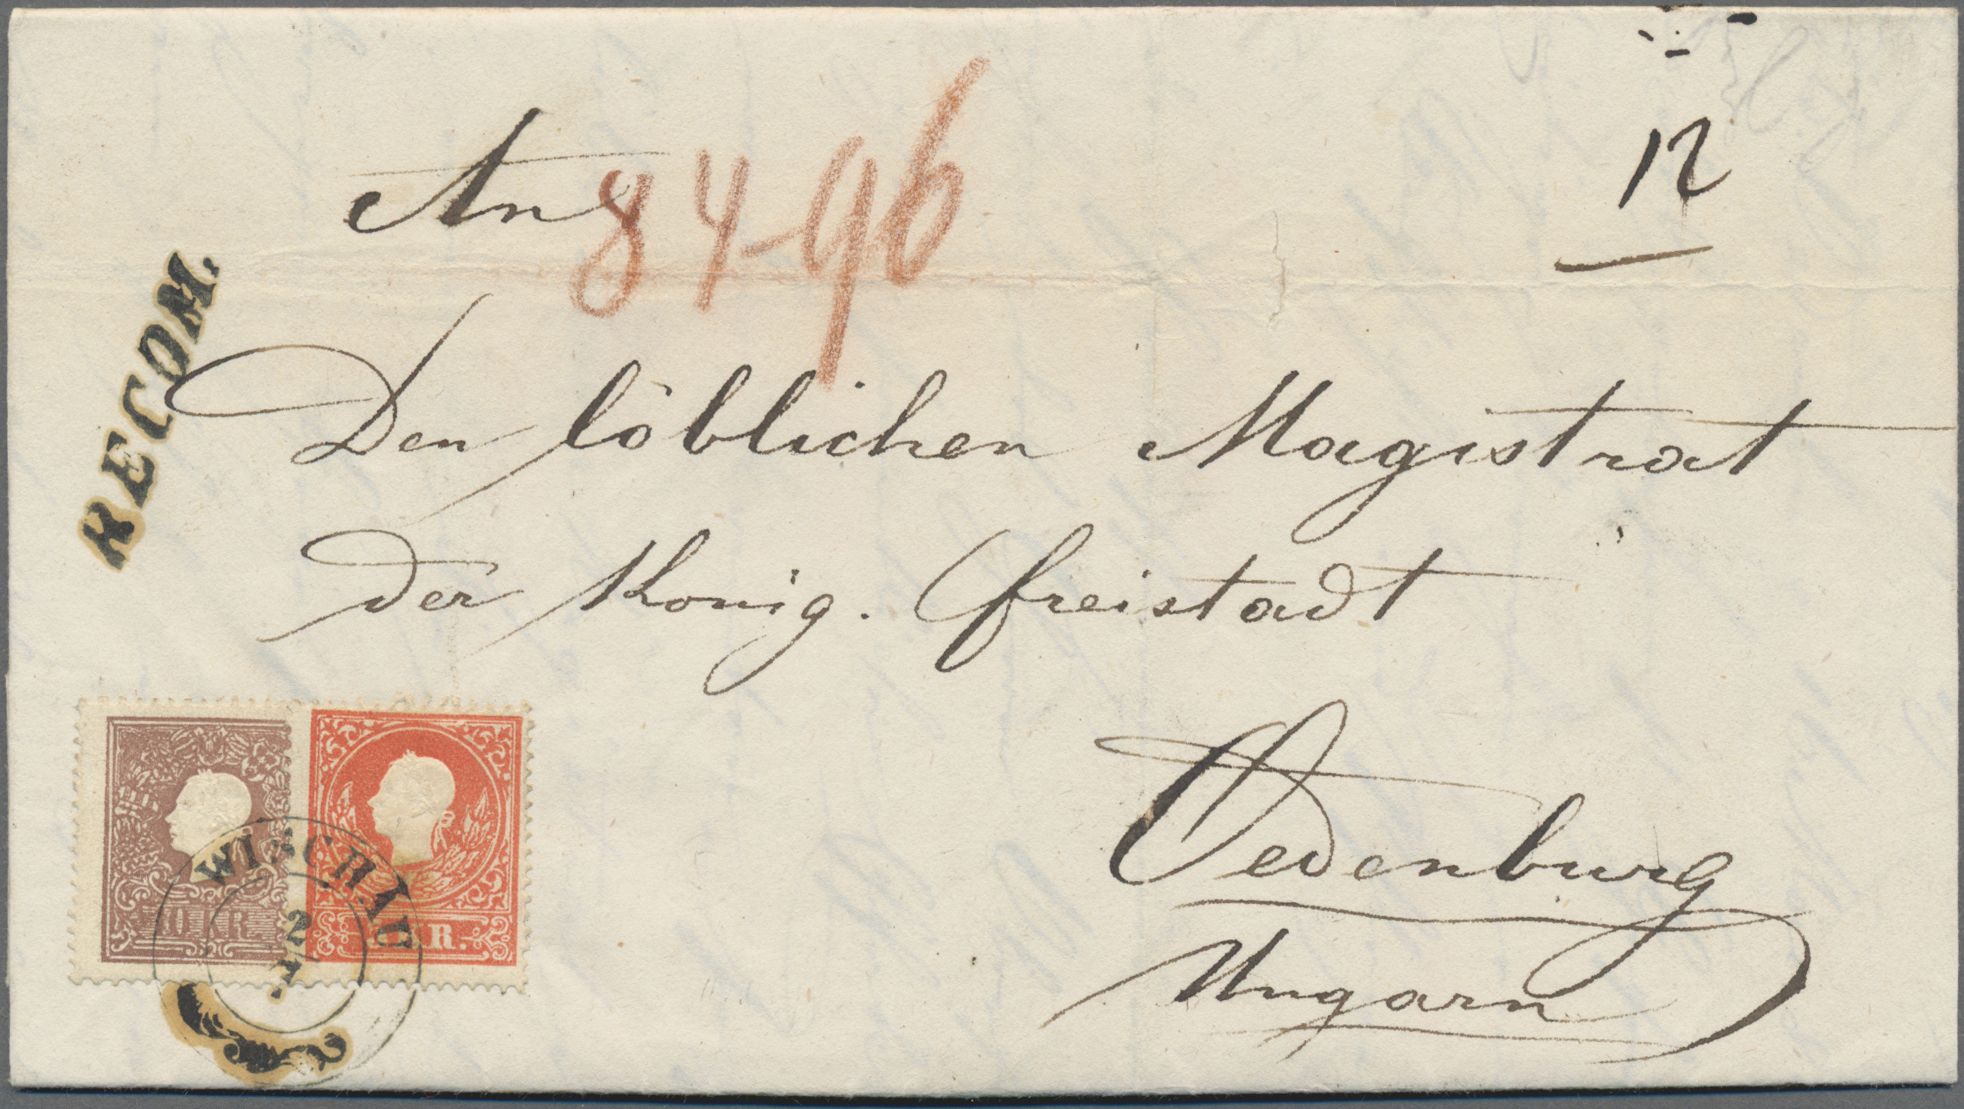 12
An
84-96
RECOM.
Den löblichen Magistrat
der König. Freistadt
Oedenburg
Ungarn
10 KR.
KR.
WISCHAU
2